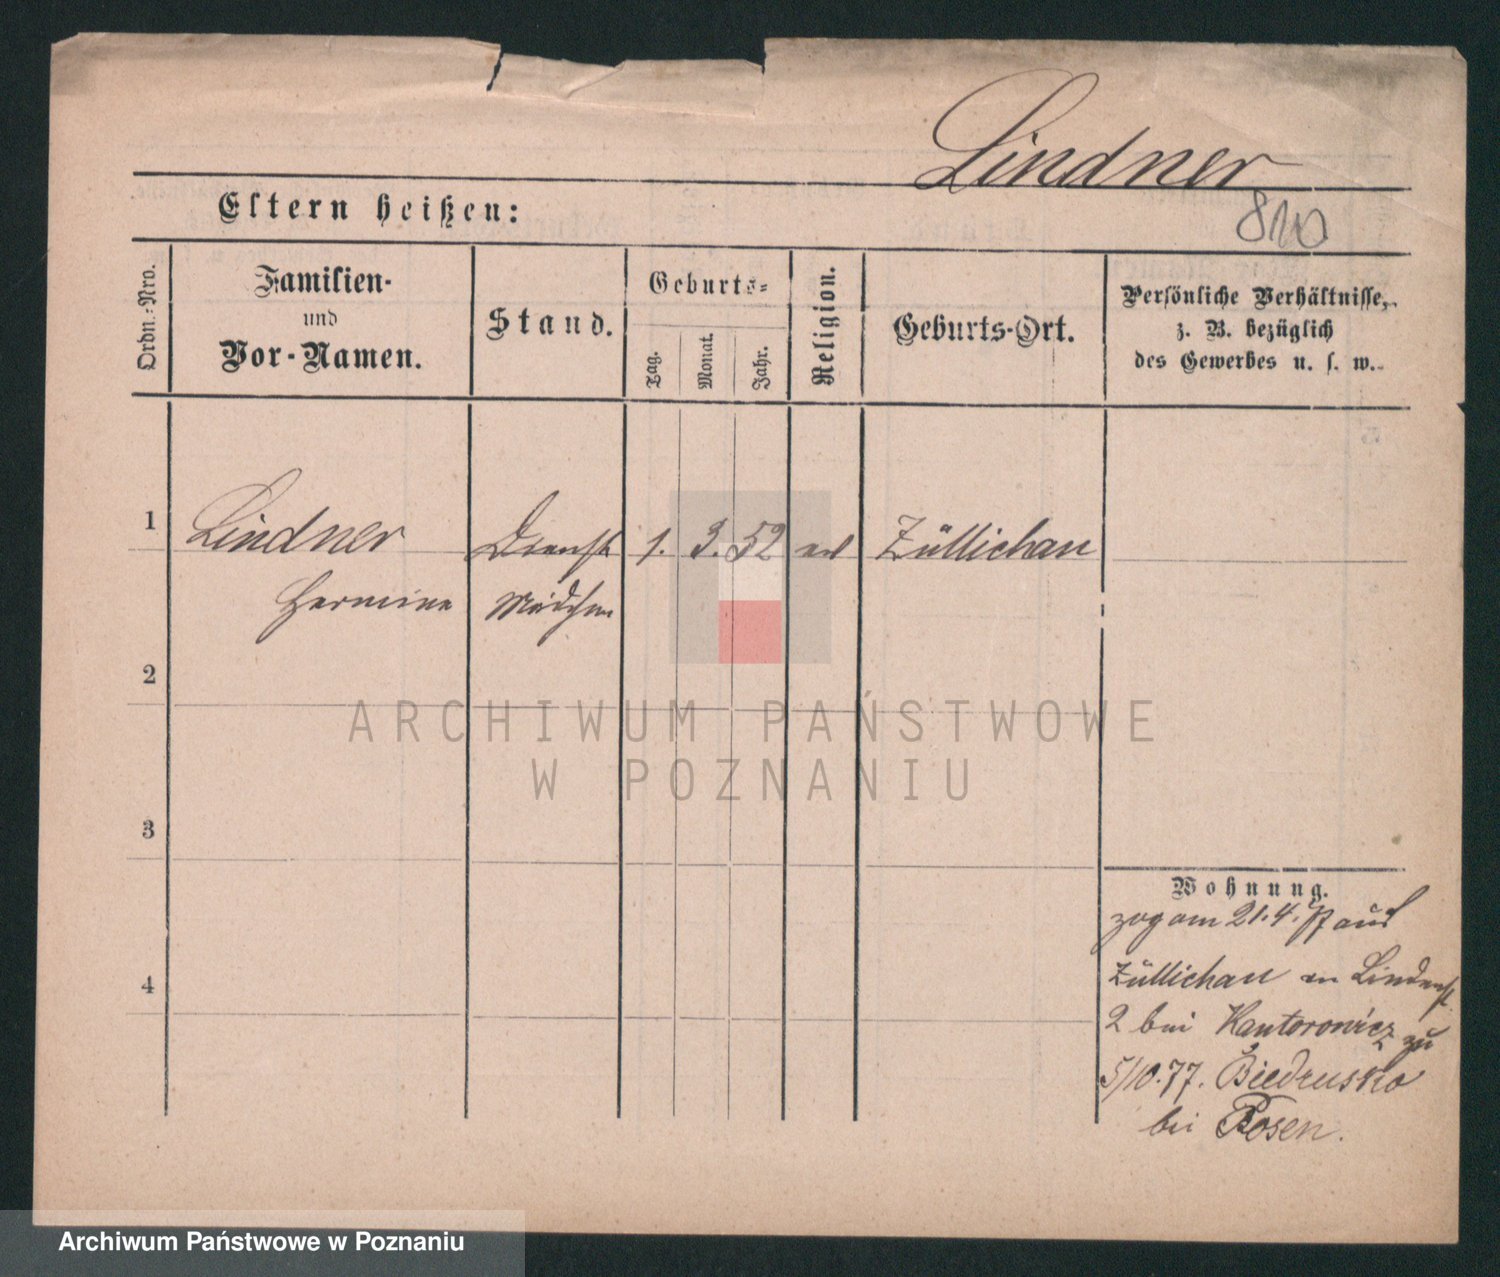 Lindner
Eltern heißen:
810
Ordn.-Nro.
Familien-
und
Vor-Namen.
Stand.
Geburts-
Tag.
Monat.
Jahr.
Religion.
Geburts-Ort.
Persönliche Verhältnisse,
z. B. bezüglich
des Gewerbes u. s. w.
1 Lindner Dienst 1. 3. 52 ev Züllichau
Hermine Mädchen
2
ARCHIWUM PAŃSTWOWE
W POZNANIU
3
4
Wohnung.
zog am 21.4.77 aus
Züllichau Lindenst
2 bei Kantorowicz zu
5/10.77. Biedrusko
bei Posen.
Archiwum Państwowe w Poznaniu